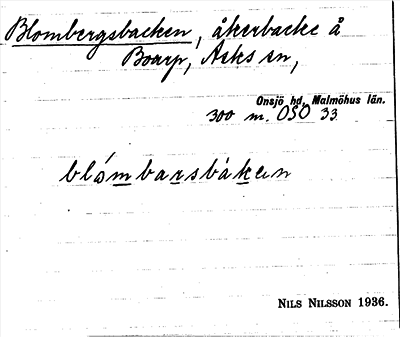 Blombergsbacken, åkerbacke å
Boarp, Asks sn,
Onsjö hd, Malmöhus län.
300 m. OSO 33
blómbarsbàken
NILS NILSSON 1936.